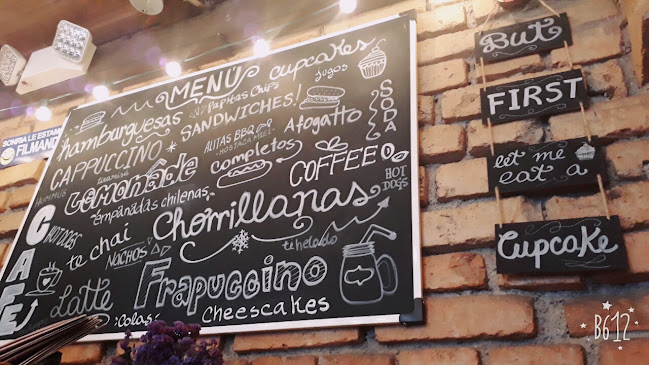 SONRÍA LE ESTAMOS
FILMANDO
MENÚ
cupcakes
hamburguesas
Papitas chips
jugos
SANDWICHES!
CAPPUCCINO
ALITAS BBQ
MOSTAZA MIEL
Afogatto
SODA
Lemonade
completos
COFFEE
empanadas chilenas
HOT DOGS
CAFE
HOT DOGS
te chai
Chorrillanas
NACHOS
te helado
Latte
Frapuccino
:Colas:
Cheescakes
BUT
FIRST
let me
eat a
Cupcake
B612